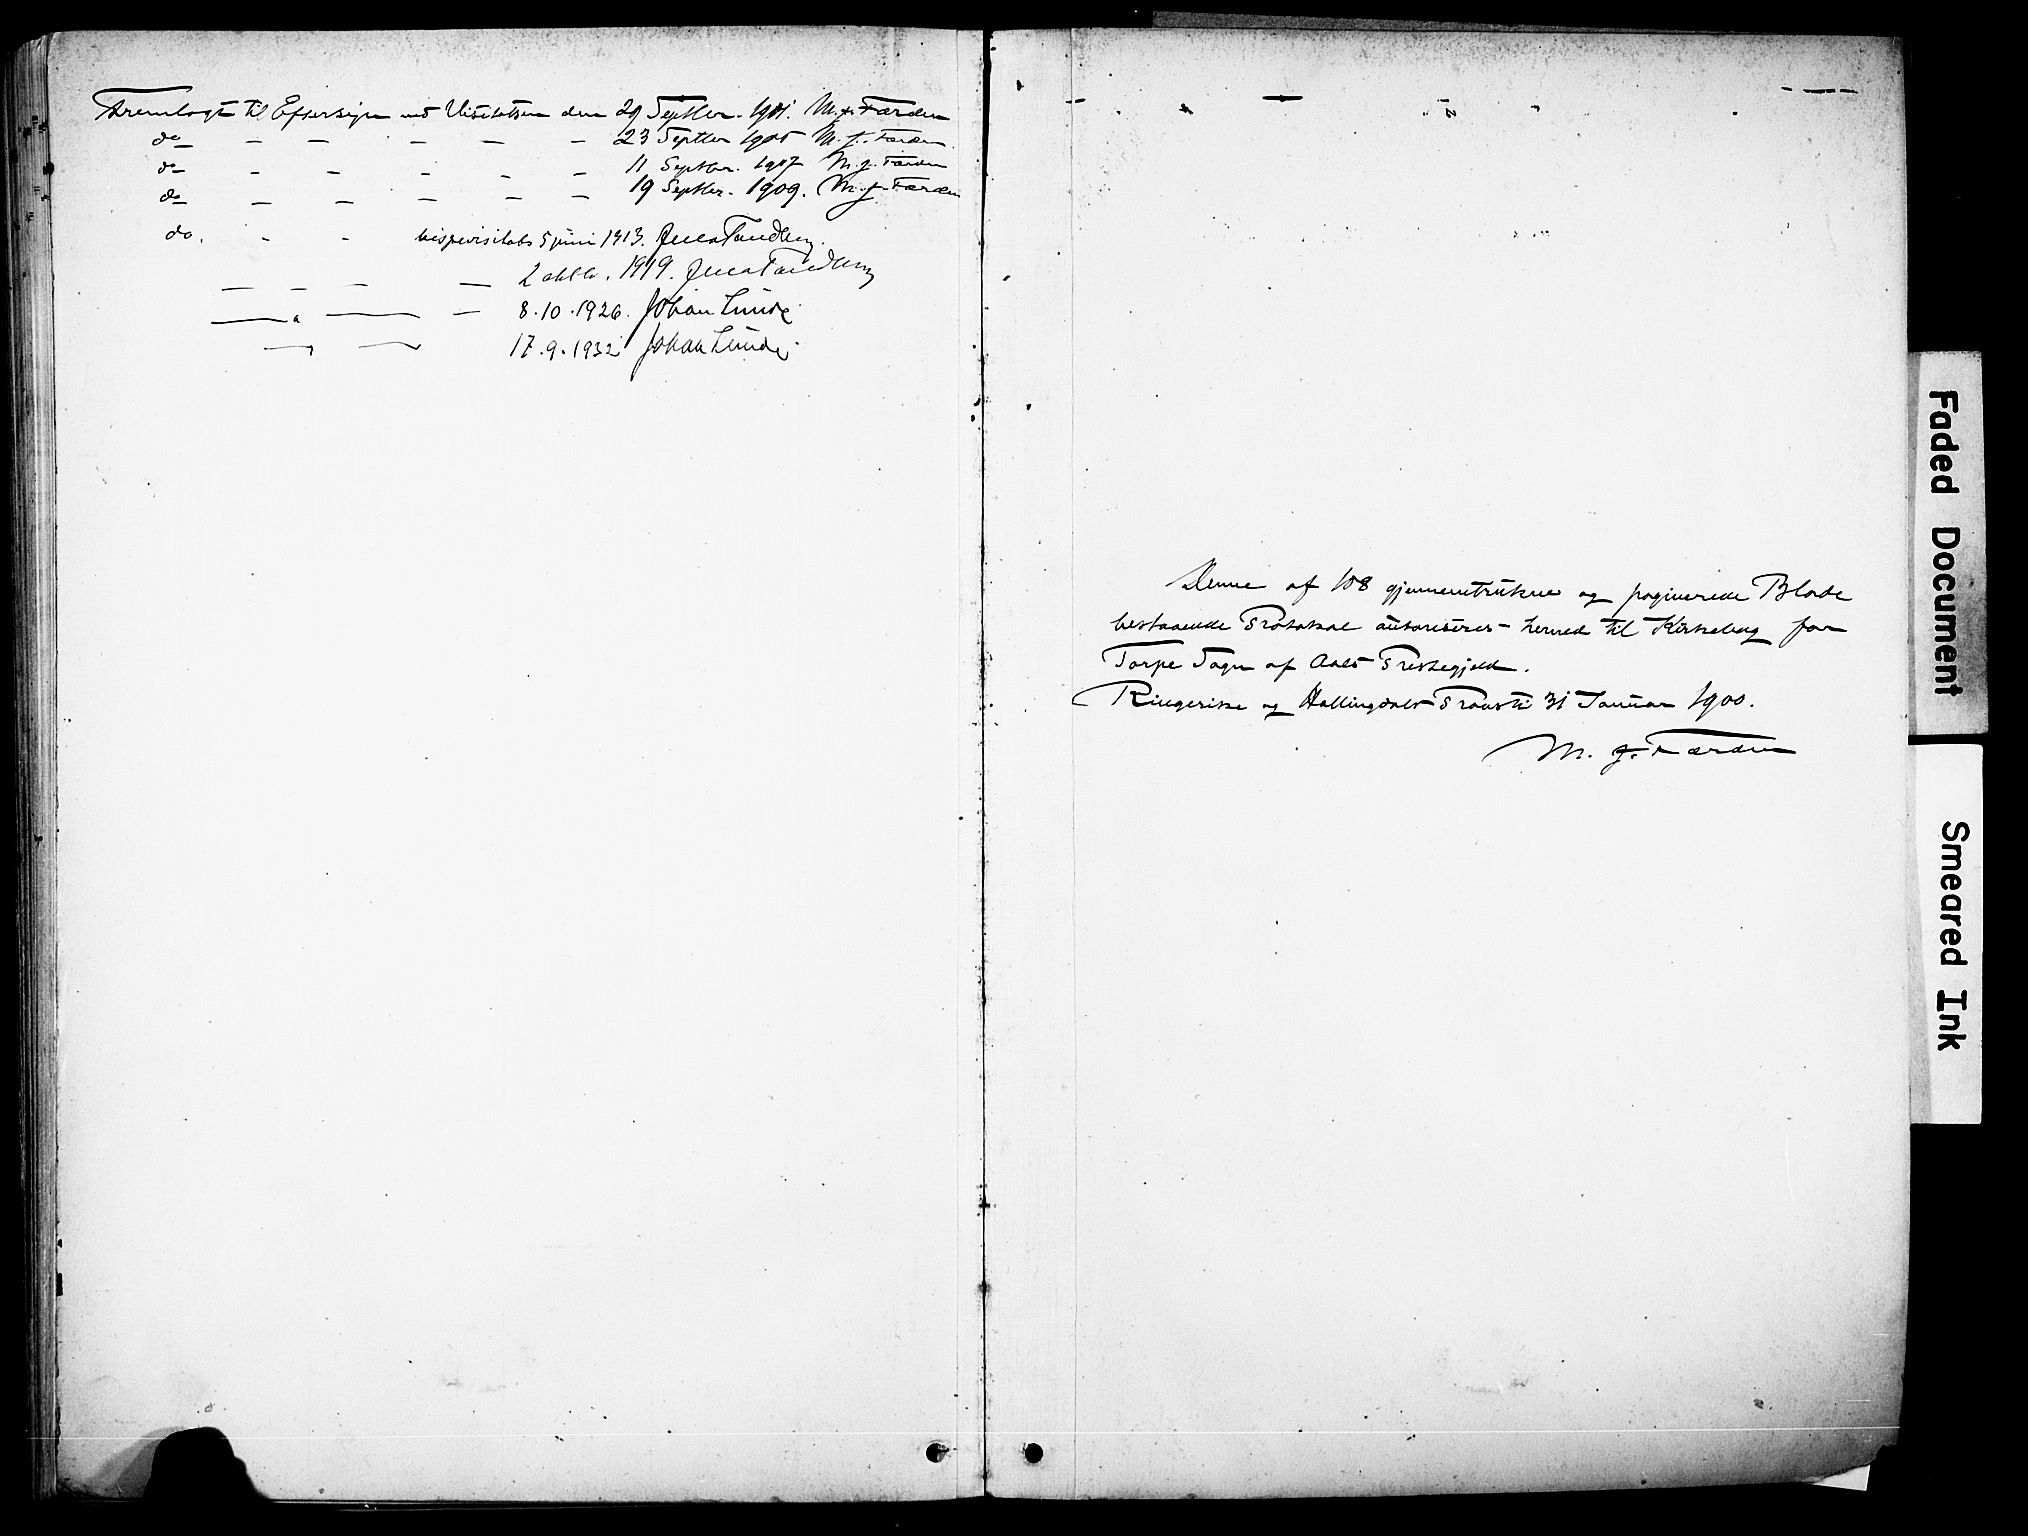 Fremlagt til Eftersyn ved Visitatsen den 29 Septbr. 1901. M. J. Færden
do – – – – – 23 Septbr 1905 M. J. Færden
do – – – – – 11 Septbr. 1907 M. J. Færden
do – – – – – 19 Septbr. 1909. M. J. Færden
do. – – bispevisitats 5 juni 1913. Jens Tandberg.
– – – – 2 oktb. 1919. Jens Tandberg
— " — – 8.10.1926. Johan Lunde.
— " — 17.9.1932 Johan Lunde.
Denne af 108 gjennemtrukne og paginerede Blade
bestaaende Protokol autoriseres herved til Kirkebog for
Torpe Sogn af Aals Prestegjeld.
Ringerike og Hallingdals Provsti 31 Januar 1900.
M. J. Færden
Faded Document
Smeared Ink